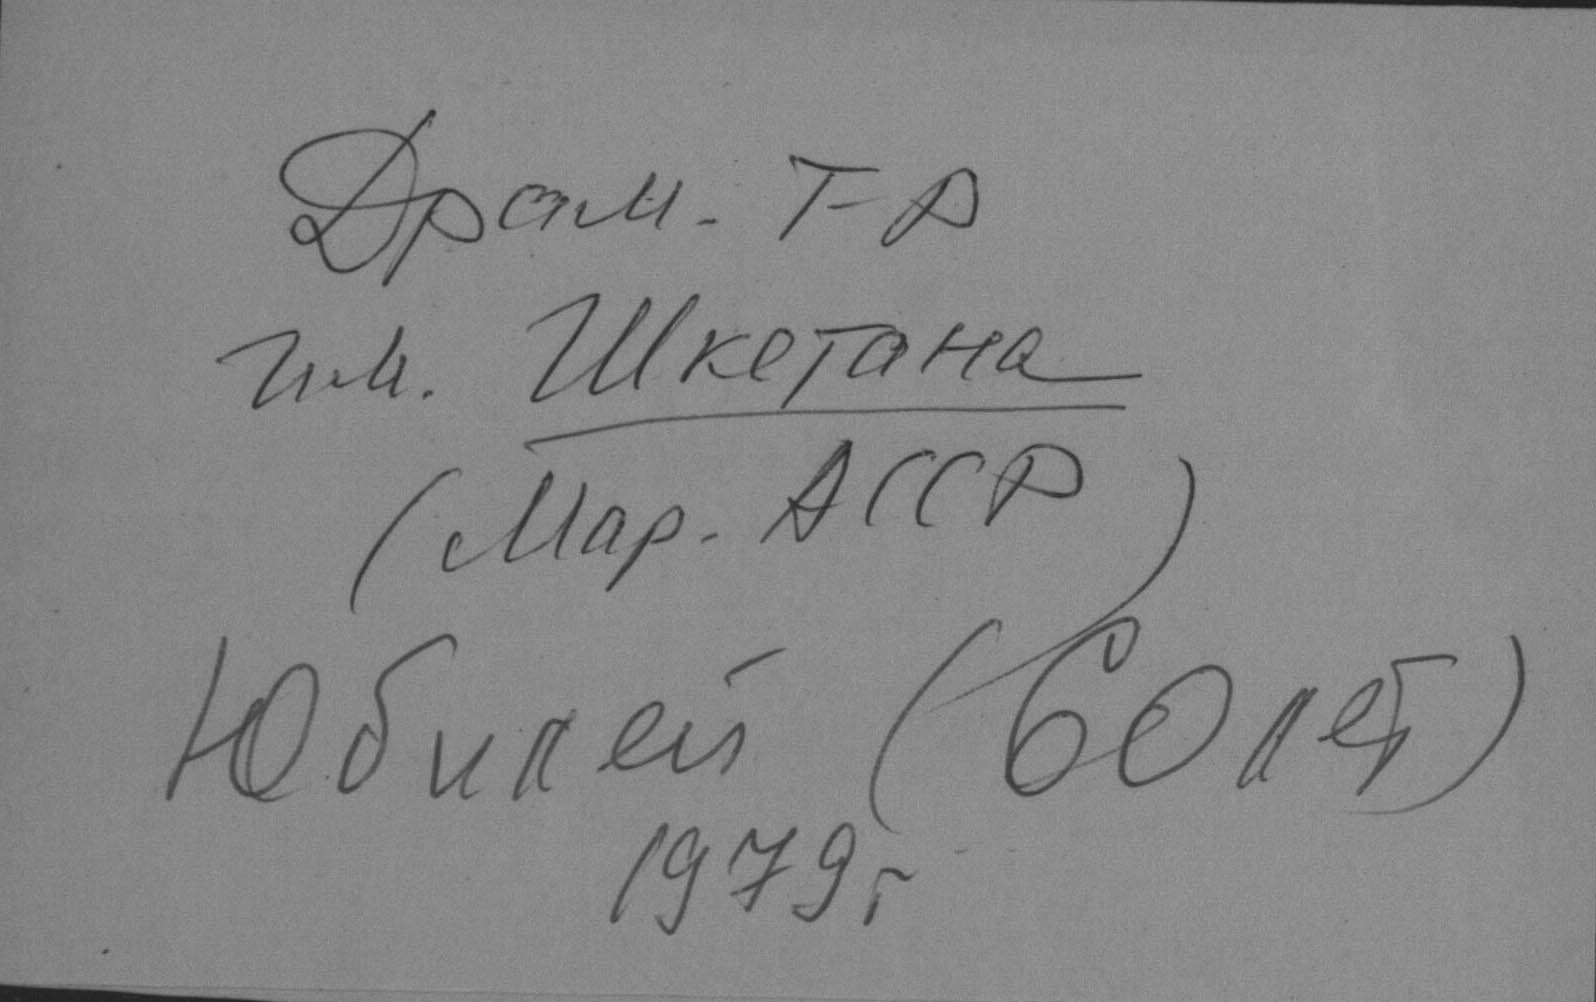 Драм. т-р
им. Шкетана
(Мар. АССР)
Юбилей (60 лет)
1979г